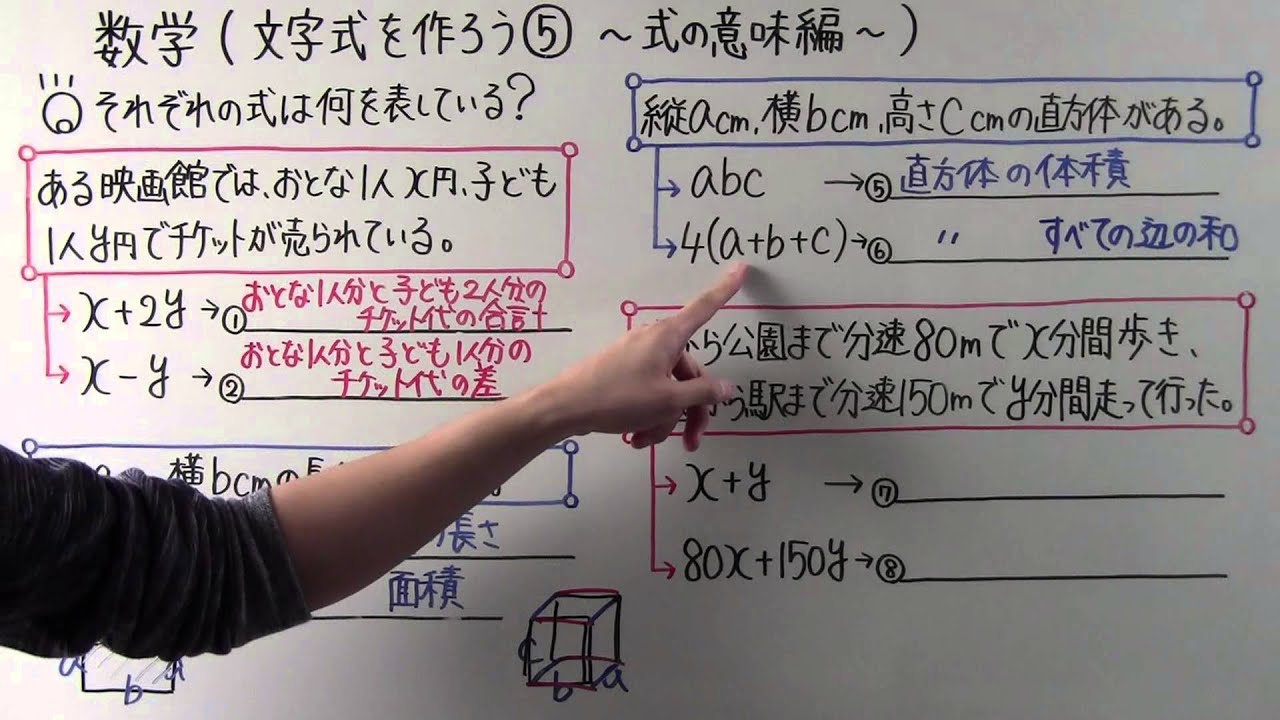 数学(文字式を作ろう⑤ ~式の意味編~)
それぞれの式は何を表している?
ある映画館では、おとな1人x円、子ども
1人y円でチケットが売られている。
x+2y→①おとな1人分と子ども2人分の
チケット代の合計
x-y→②おとな1人分と子ども1人分の
チケット代の差
横bcmの長
長さ
面積
a
b
a
縦acm、横bcm、高さCcmの直方体がある。
abc →⑤直方体の体積
4(a+b+c)→⑥ 〃 すべての辺の和
ら公園まで分速80mでx分間歩き、
ら駅まで分速150mでy分間走って行った。
x+y →⑦
80x+150y→⑧
c
b
a